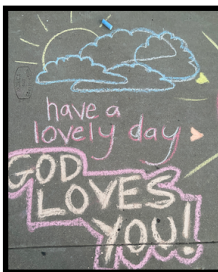 have a
lovely day
GOD
LOVES
YOU!